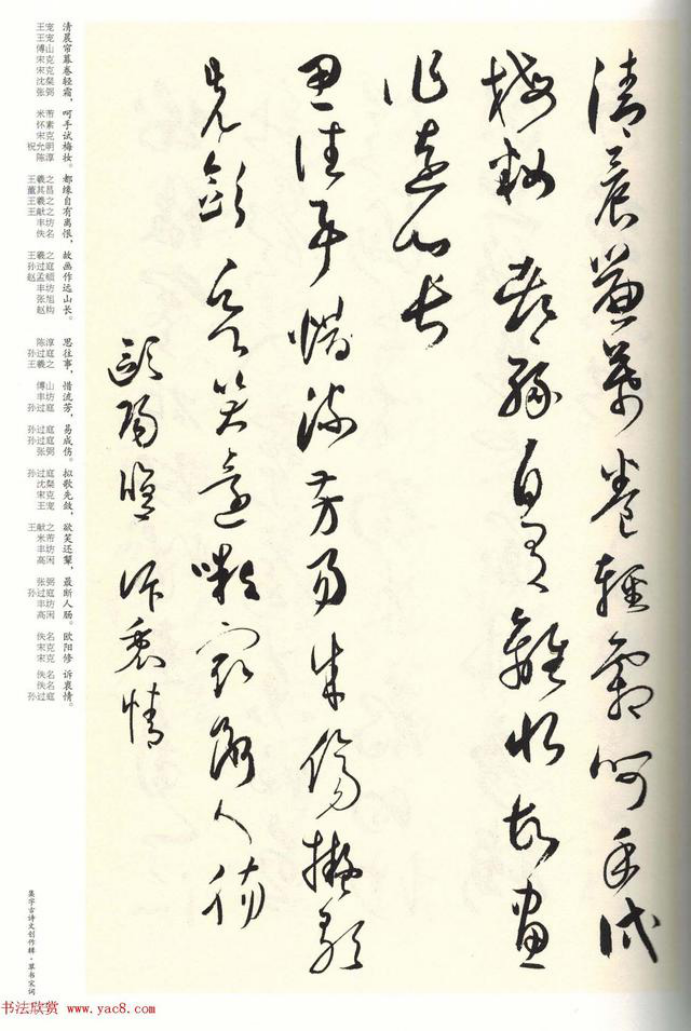 清晨簾幕卷輕霜呵手試
梅妝都緣自有離恨故畫
作遠山長
思往事惜流芳易成傷擬歌
先斂欲笑還顰最斷人腸
歐陽修 訴衷情
清晨帘幕卷轻霜，呵手试梅妆。都缘自有离恨，故画作远山长。思往事，惜流芳，易成伤。拟歌先敛，欲笑还颦，最断人肠。欧阳修 诉衷情。
王宠
王宠
傅山
宋克
宋克
沈粲
张弼
米芾
怀素
宋克
祝允明
陈淳
王羲之
董其昌
王羲之
王献之
丰坊
佚名
王羲之
孙过庭
赵孟頫
丰坊
张旭
赵构
陈淳
孙过庭
王羲之
傅山
丰坊
孙过庭
孙过庭
孙过庭
张弼
孙过庭
沈粲
宋克
王宠
王献之
米芾
丰坊
高闲
张弼
孙过庭
丰坊
高闲
佚名
宋克
宋克
佚名
佚名
孙过庭
集字古诗文创作辑·草书宋词
书法欣赏 www.yac8.com